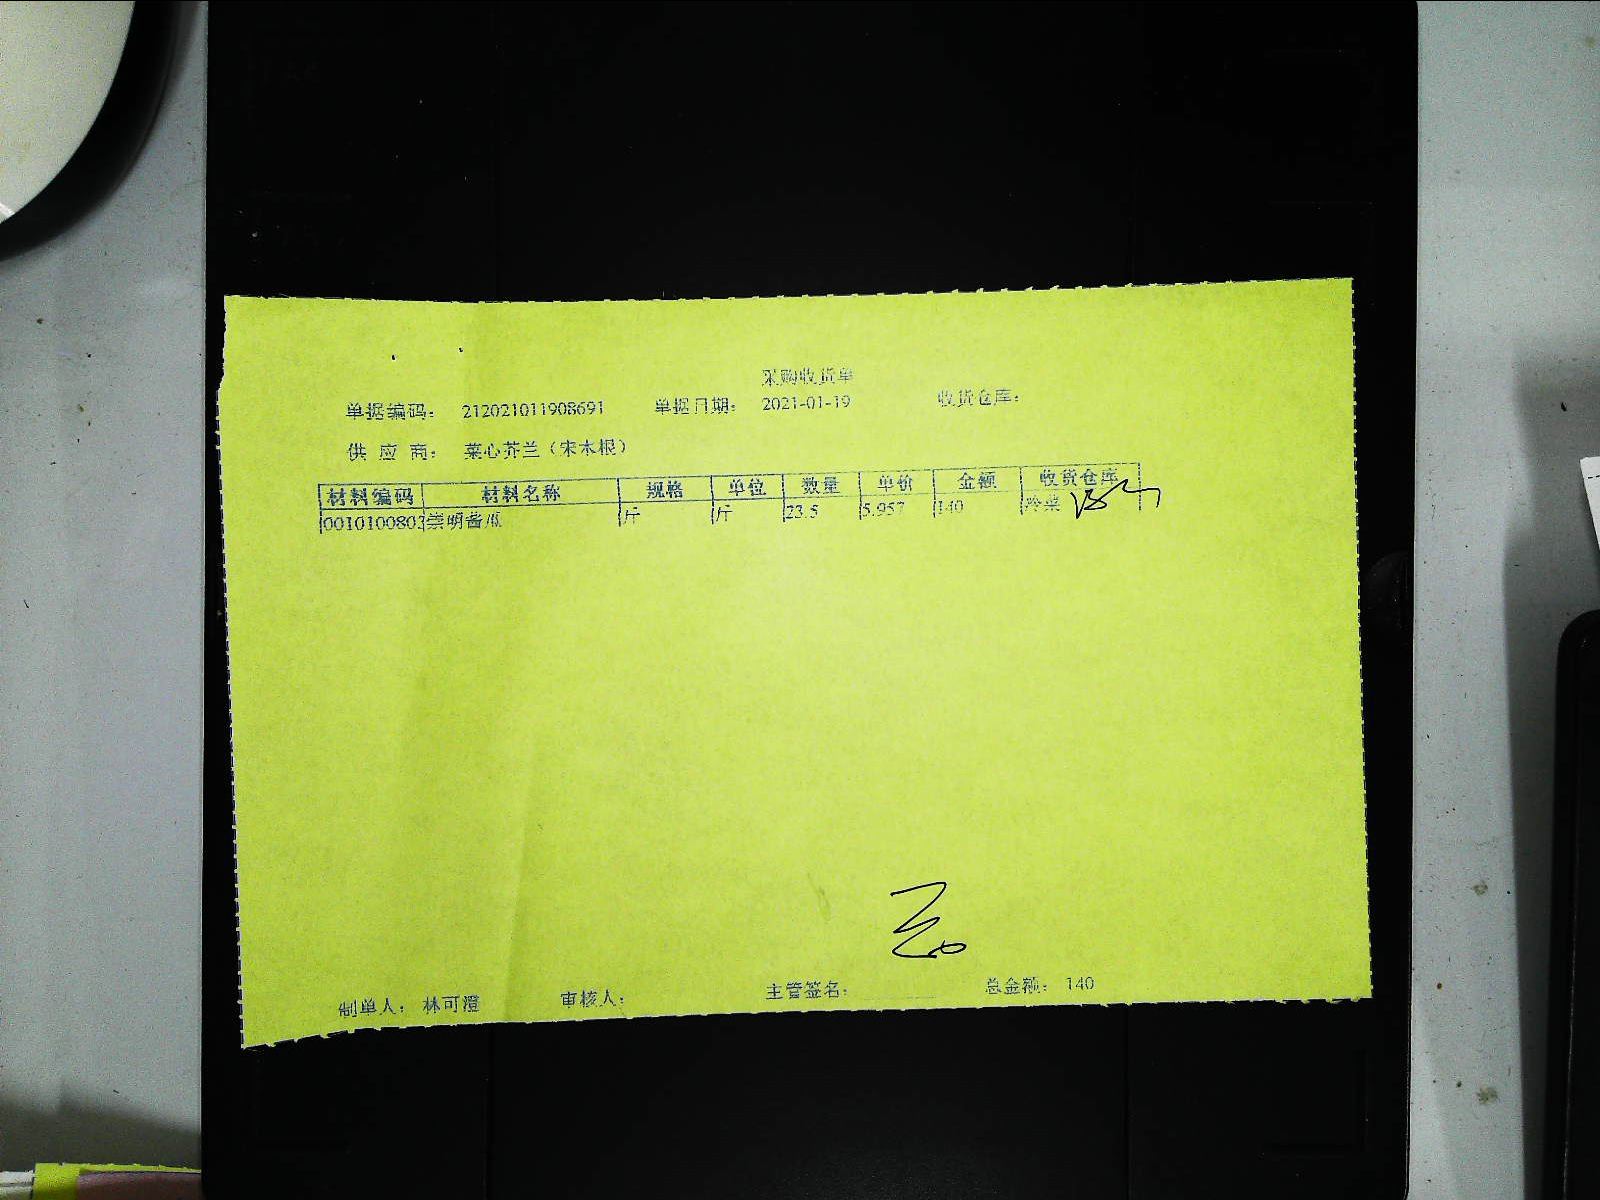 采购收货单
单据编码： 212021011908691 单据日期： 2021-01-19 收货仓库：
供 应 商： 菜心芥兰（宋木根）
材料编码 材料名称 规格 单位 数量 单价 金额 收货仓库
0010100803 崇明酱瓜 斤 斤 23.5 5.957 140 冷菜
制单人： 林可澄 审核人： 主管签名： 总金额： 140